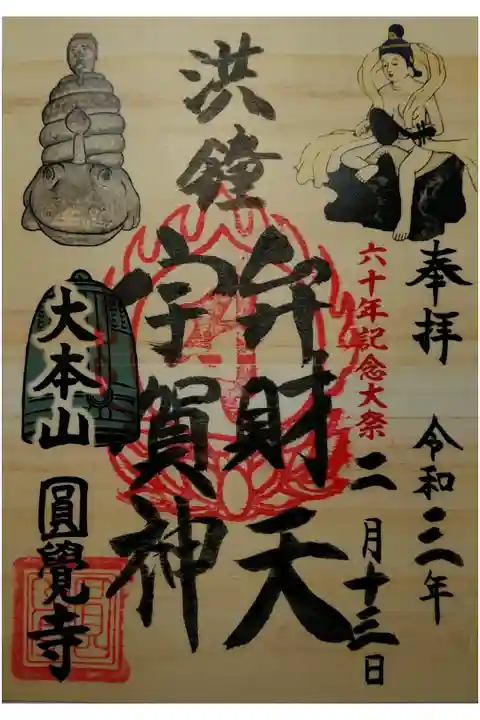 奉拝 令和三年
二月十三日
六十年記念大祭
洪鐘
弁財天
宇賀神
大本山
圓覺寺